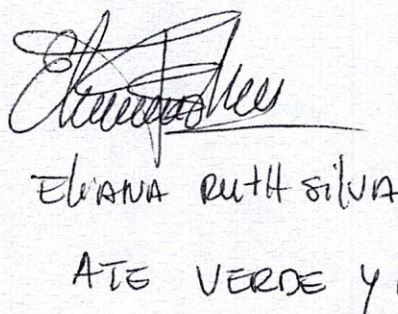 Eliana Ruth Silva
ATE VERDE Y